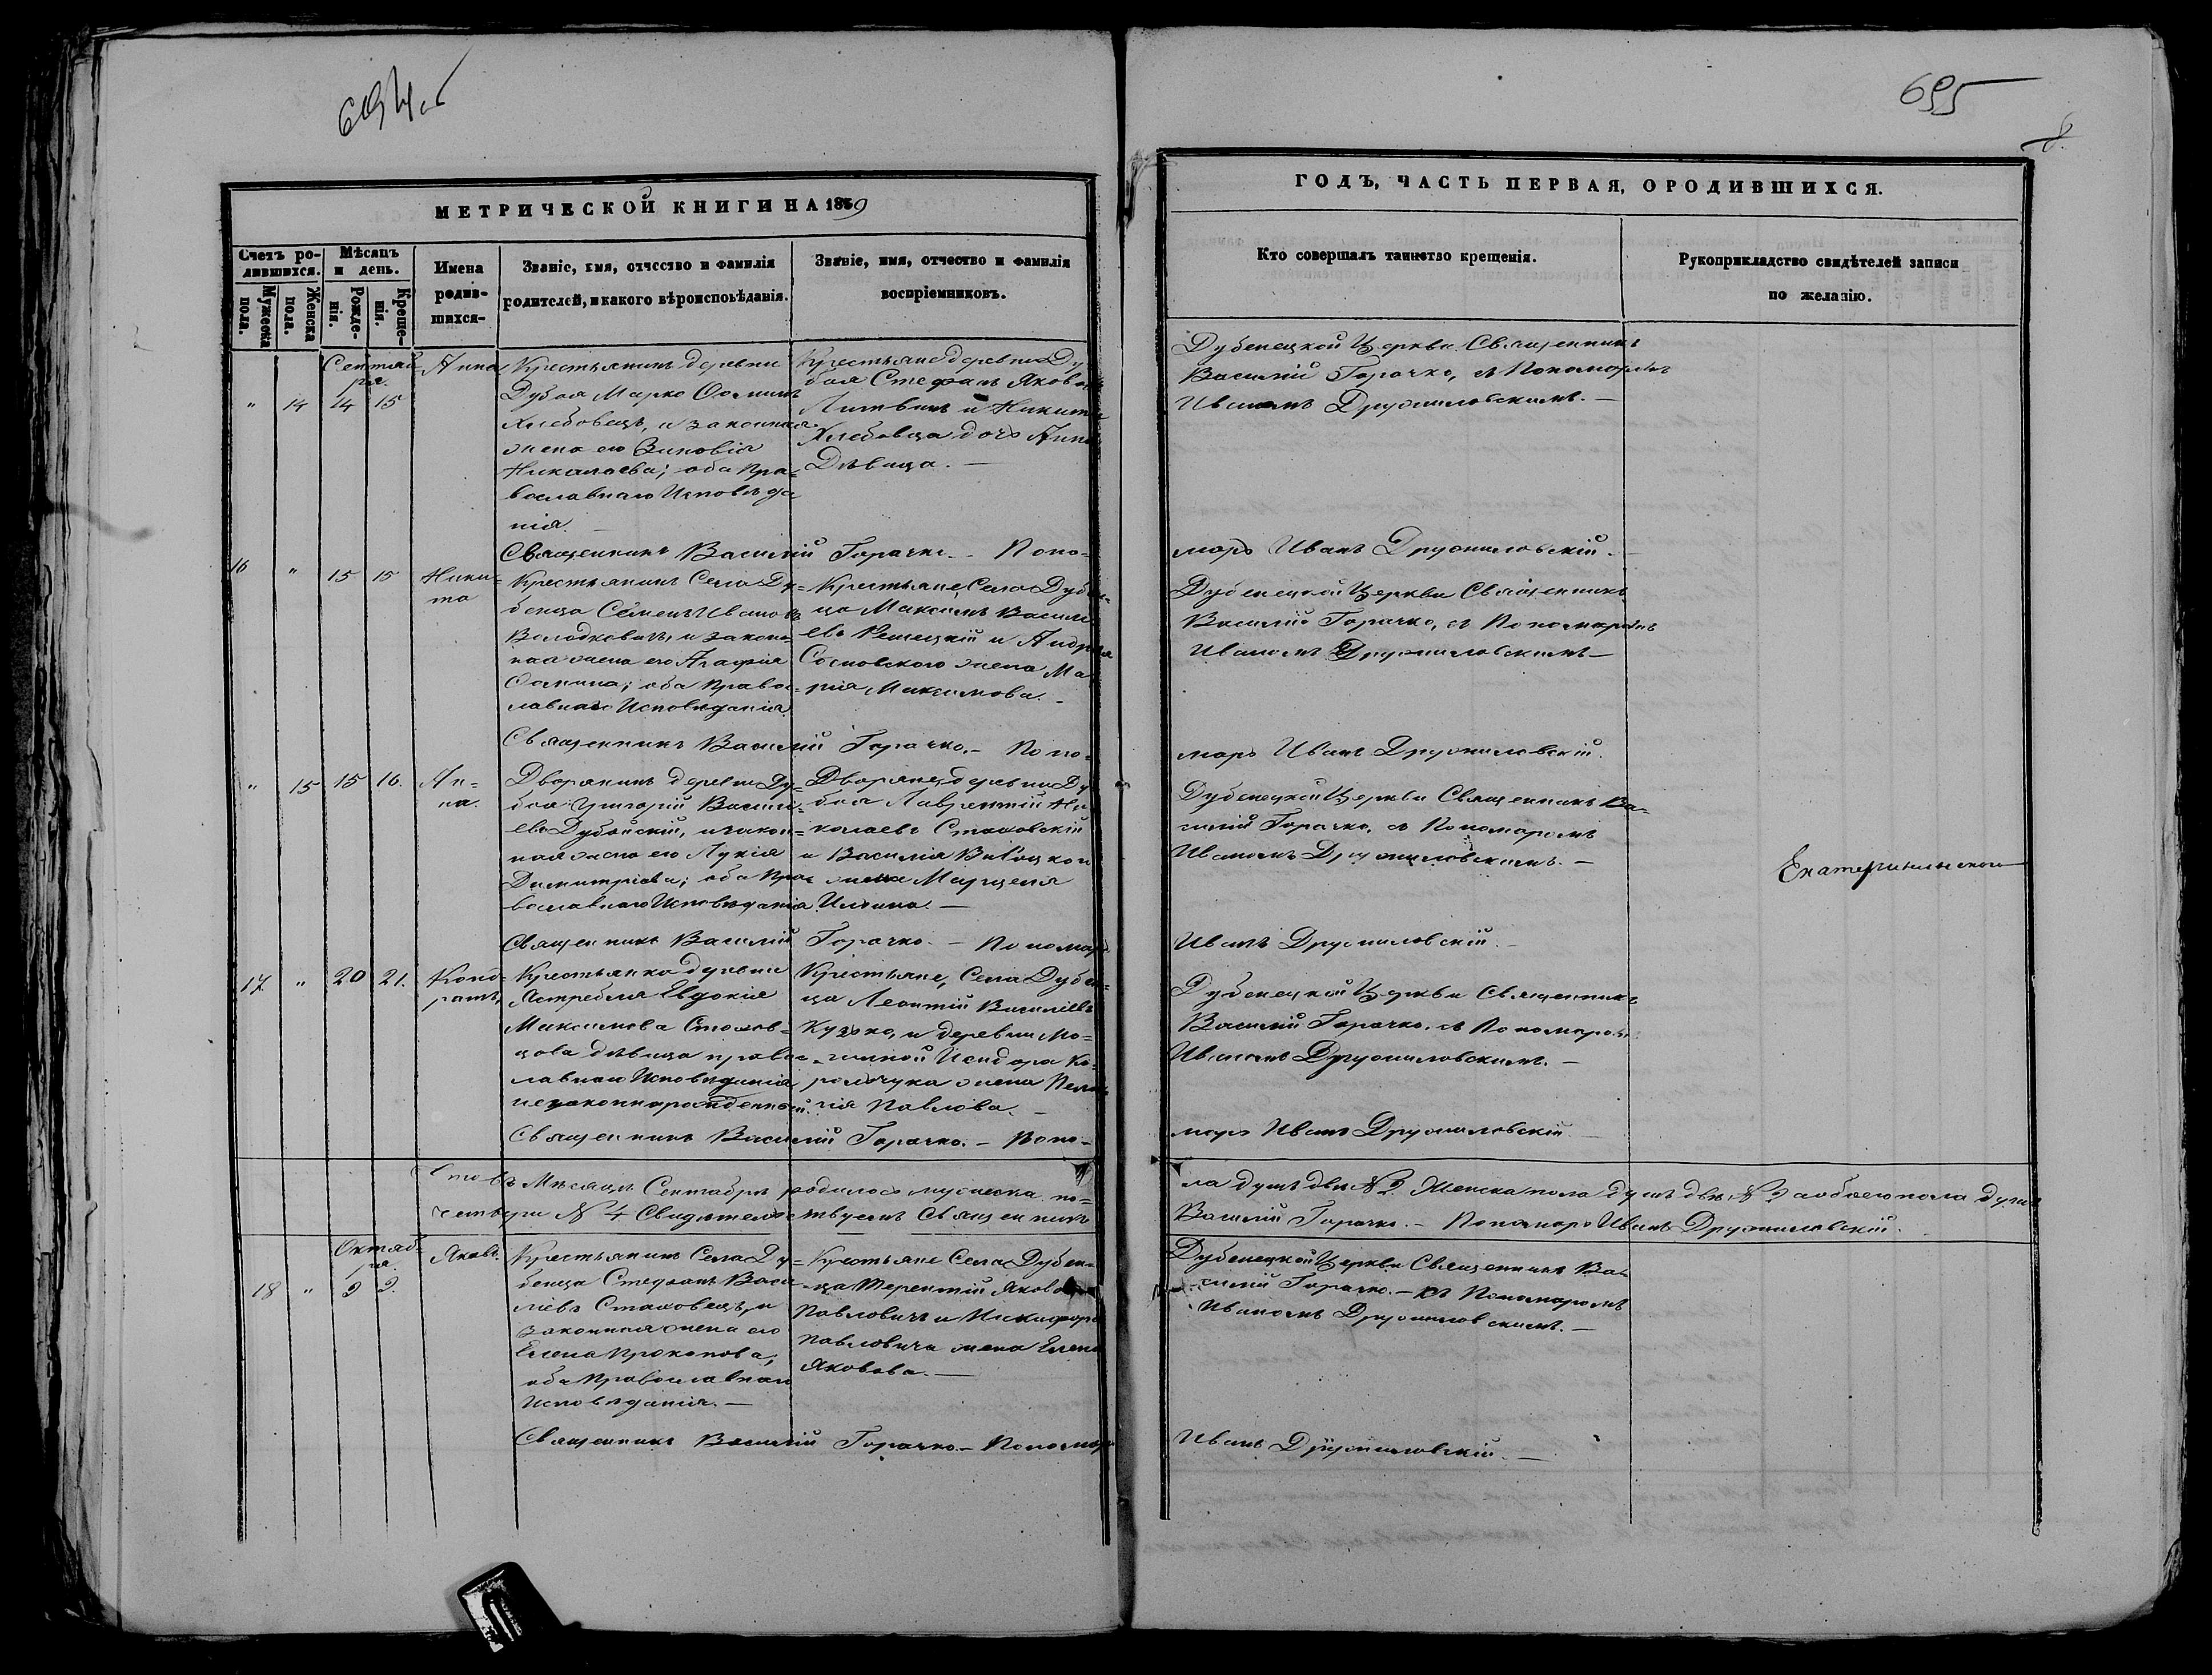 695
МЕТРИЧЕСКОЙ КНИГИ НА 1859
ГОДЪ, ЧАСТЬ ПЕРВАЯ, О РОДИВШИХСЯ.
Счетъ ро-
дившихся.
Мужеска
пола.
Женска
пола.
Мѣсяцъ
и день.
Рожде-
нія.
Креще-
нія.
Имена
родив-
шихся-
Званіе, имя, отчество и фамилія
родителей, и какого вѣроисповѣданія.
Званіе, имя, отчество и фамилія
воспріемниковъ.
Кто совершалъ таинство крещенія.
Рукоприкладство свидѣтелей записи
по желанію.
Сентяб
ря.
" 14 14 15
Анна
Крестьянинъ деревни
Дубоя Марко Осиповъ
Хлебовецъ, и законная
жена его Зиновія
Николаева; оба Пра-
вославнаго Исповѣда
нія.
Крестьяне деревни Ду
боя Стефанъ Яковъ
Литвинъ и Никиты
Хлебовца дочь Анна
Дѣвица. —
Дубенецкой Церкви Священникъ
Василій Горачко, съ Пономаремъ
Иваномъ Дружиловскимъ. —
Священникъ Василій Горачко. - Поно-
марь Иванъ Дружиловскій. -
16 " 15 15
Ники-
та
Крестьянинъ Села Ду-
бенца Семенъ Ивановъ
Володковичъ, и закон
ная жена его Агафія
Осипова; оба Правос-
лавнаго Исповѣданія.
Крестьяне, Села Дубен-
ца Максимъ Василь
евъ Решецкій и Андрея
Сосновского жена Ма
рія Максимова. -
Дубенецкой Церкви Священникъ
Василій Горачко, съ Пономаремъ
Иваномъ Дружиловскимъ —
Священникъ Василій Горачко. - Поно-
марь Иванъ Дружиловскій.
" 15 15 16.
Ан-
на.
Дворянинъ деревни Ду-
боя Григорій Василь-
евъ Дубойскій, и закон-
ная жена его Лукія
Димитріева; оба Пра-
вославнаго Исповѣданія.
Дворяне деревни Ду
боя Лаврентій Ни
колаевъ Стаховскій
и Василія Витоцкого
жена Марцеля
Ильина. —
Дубенецкой Церкви Священникъ Ва-
силій Горачко, съ Пономаромъ
Иваномъ Дружиловскимъ. —
Священникъ Василій Горачко. - Пономарь
Иванъ Дружиловскій. -
17 " 20 21.
Коно-
ратъ
Крестьянка деревни
Ястребля Евдокія
Максимова Стахов-
цова дѣвица правос-
лавнаго Исповѣданія
незаконнорожденный.
Крестьяне, Села Дубен-
ца Леонтій Васильевъ
Кузько, и деревни
Исидора
жена
Павлова. -
Дубенецкой Церкви Священникъ
Василій Горачко, съ Пономаромъ
Иваномъ Дружиловскимъ. —
Священникъ Василій Горачко. - Поно-
марь Иванъ Дружиловскій
Мѣсяцѣ Сентябрѣ родилось мужеска по-
ла душъ двѣ № 2. Женска пола душъ двѣ № 2 а обоего пола душъ
четыри № 4 Свидѣтельствуемъ Священникъ
Василій Горачко. - Пономарь Иванъ Дружиловскій.
Октяб-
ря.
18 " 9 9.
Яковъ.
Крестьянинъ Села Ду-
бенца Стефанъ Васи
лiевъ Стаховецъ, и
законная жена его
Елена Прокопова,
оба Православнаго
Исповѣданія. —
Крестьяне Села Дубен-
ца Терентій Яковъ
Павловичъ и Никифора
Павловича жена Елена
Яковова. —
Дубенецкой Церкви Священникъ Ва-
силій Горачко. - съ Пономаромъ
Иваномъ Дружиловскимъ. —
Священникъ Василій Горачко. - Пономарь
Иванъ Дружиловскій. —